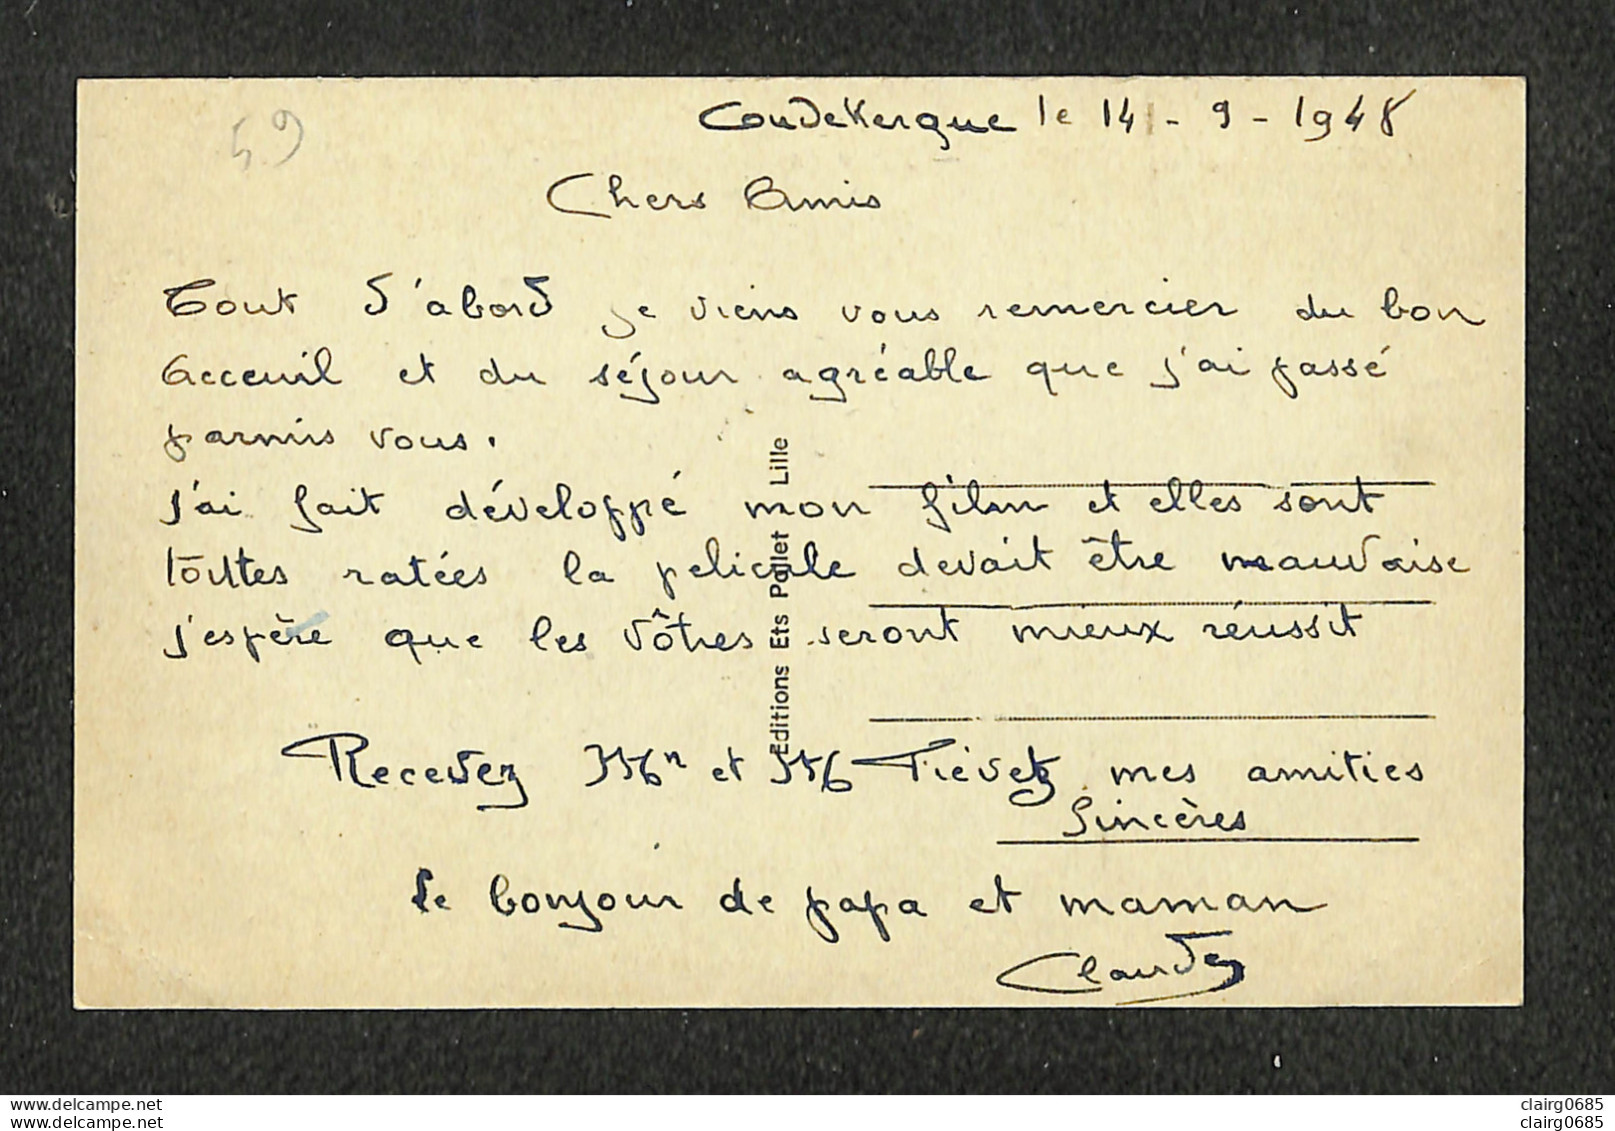 59
Coudekerque le 14 - 9 - 1948
Chers Amis
Tout d'abord je viens vous remercier du bon
acceuil et du séjour agréable que j'ai passé
parmis vous.
J'ai fait développé mon film et elles sont
toutes ratées la pelicule devait être mauvaise
j'espère que les vôtres seront mieux réussit
Recevez et mes amities
Sincères
le bonjour de papa et maman
Claude
Editions Ets Pollet Lille
www.delcampe.net
www.delcampe.net
clairg0685
clairg0685